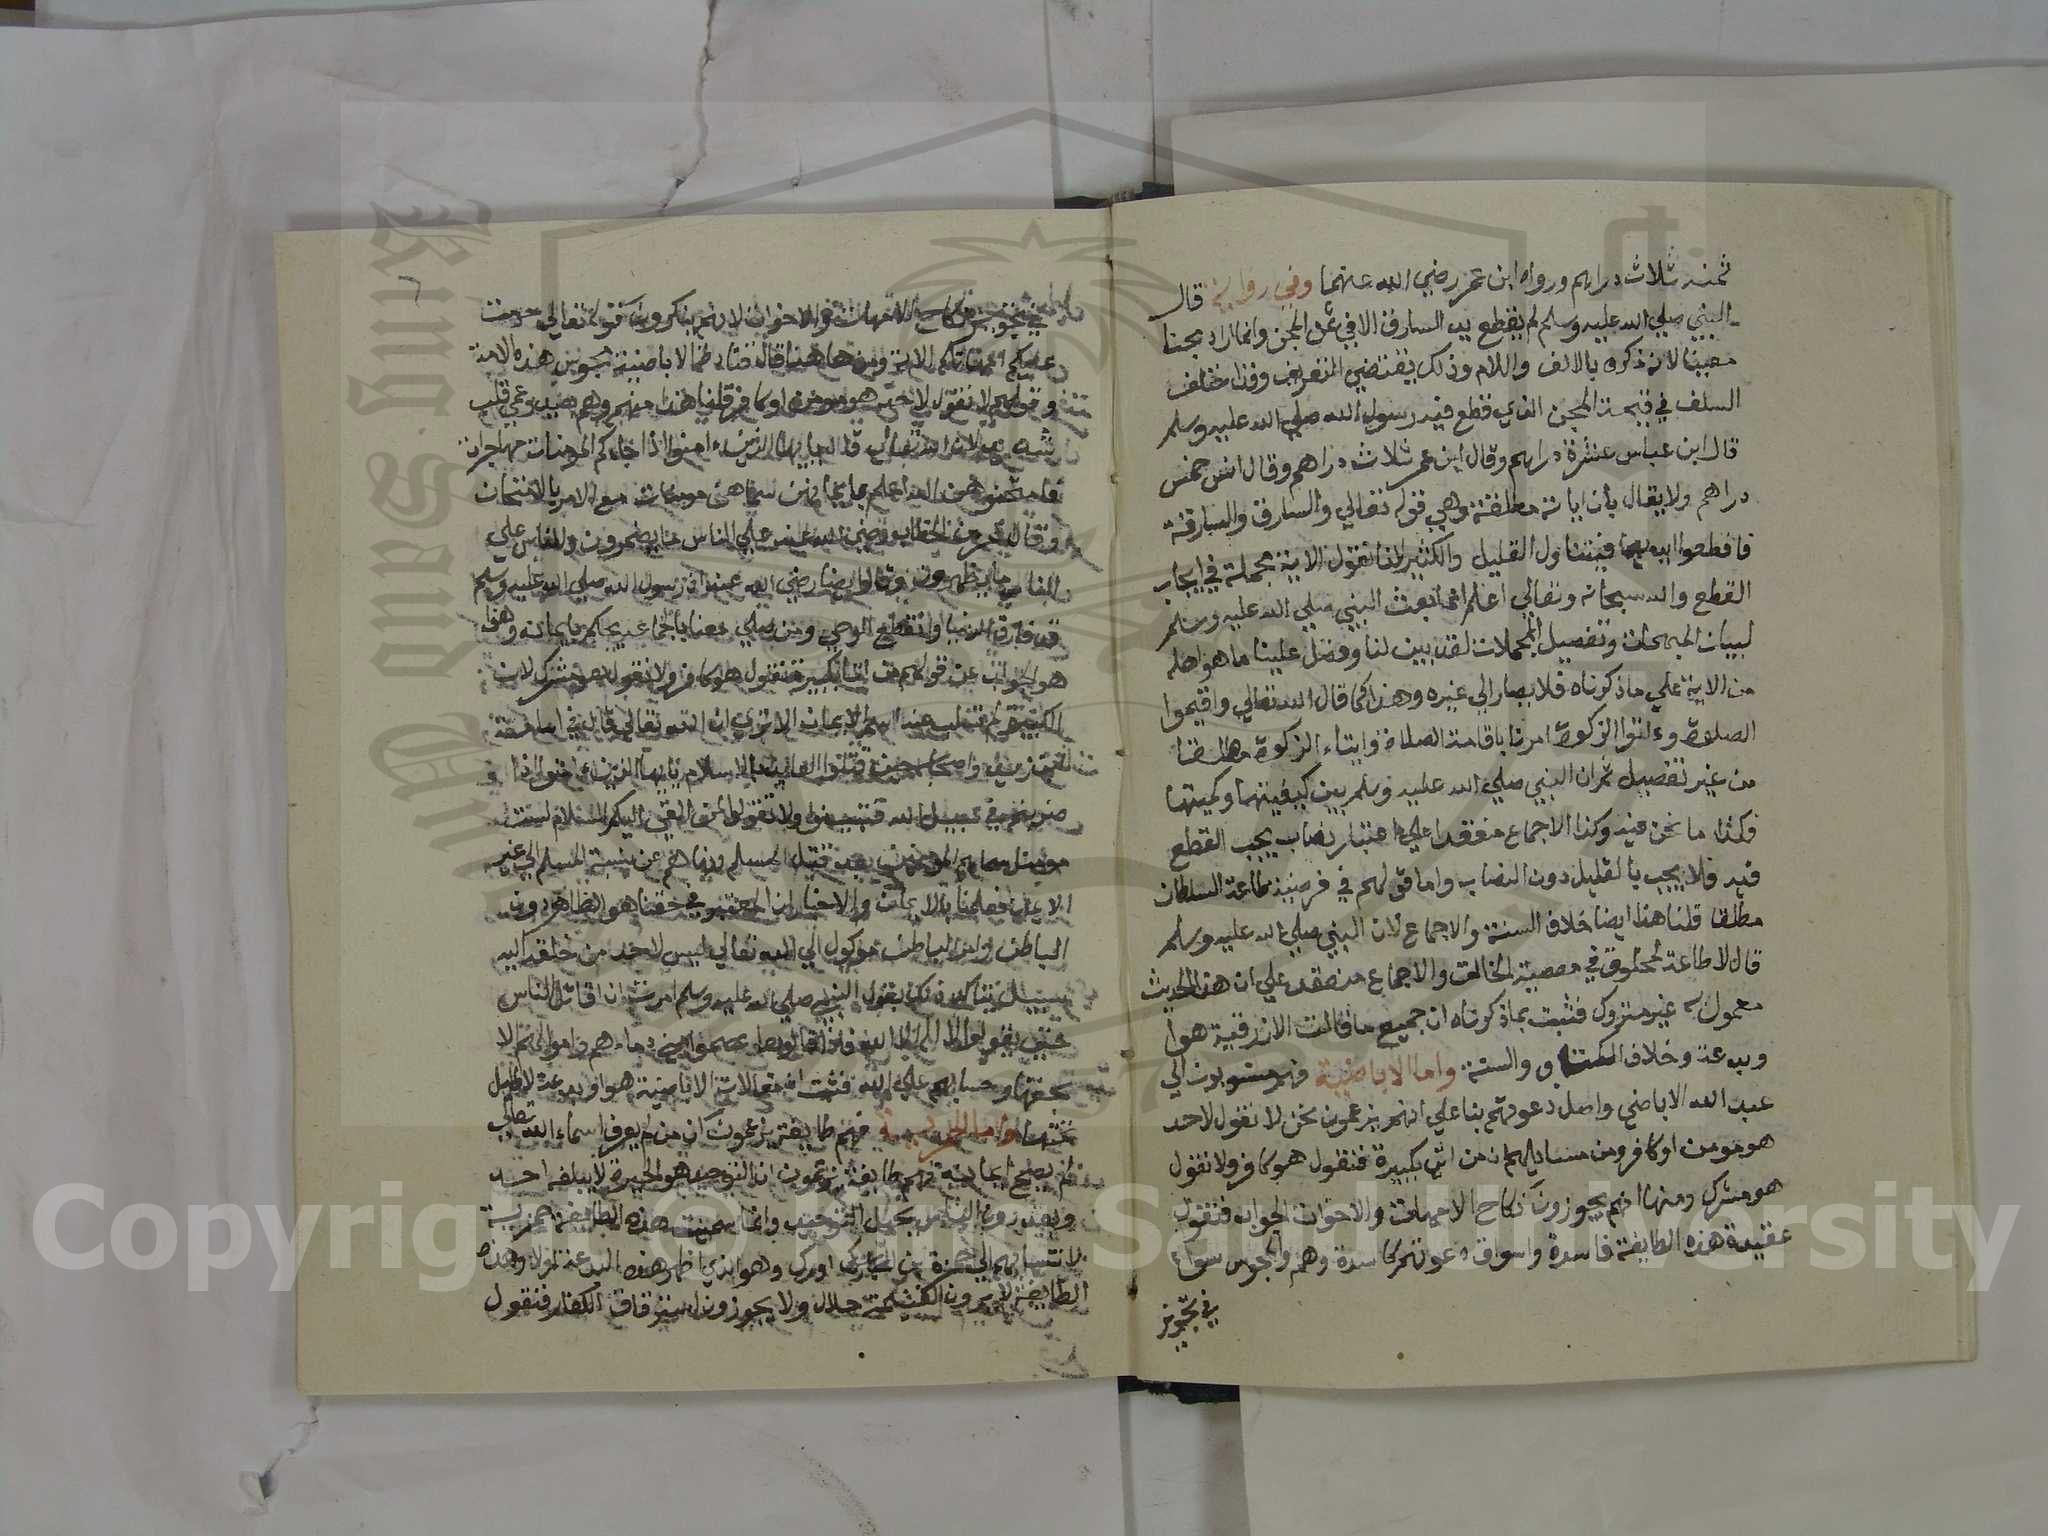 ثمنه ثلاث دراهم ورواه ابن عمر رضي الله عنهما وفي رواية قال
النبي صلي الله عليه وسلم لم يقطع يد السارق الا في ثمن المجن وانما اراد مجنا
معينا لانه ذكره بالالف واللام وذلك يقتضي التعريف وقد اختلف
السلف في قيمة المجن الذي قطع فيه رسول الله صلي الله عليه وسلم
قال ابن عباس عشرة دراهم وقال ابن عمر ثلاث دراهم وقال انس خمس
دراهم ولا يقال بان اياته مطلقة وهي قوله تعالي والسارق والسارقة
فاقطعوا ايديهما فيتناول القليل والكثير لانا نقول الاية مجملة في ايجاب
القطع والله سبحانه وتعالي اعلم انما بعث النبي صلي الله عليه وسلم
لبيان المبهمات وتفصيل المجملات لقد بين لنا وفصل علينا ما هو اصله
من الاية علي ما ذكرناه فلا يصار الي غيره وهذا كما قال الله تعالي واقيموا
الصلوة وءاتوا الزكوة امرنا باقامة الصلاة وايتاء الزكوة مطلقا
من غير تفصيل ثم ان النبي صلي الله عليه وسلم بين كيفيتها وكميتها
فكذا ما نحن فيه وكذا الاجماع منعقد علي اعتبار نصاب يجب القطع
فيه فلا يجب بالقليل دون النصاب واما قولهم في فرضية طاعة السلطان
مطلقا قلنا هذا ايضا خلاف السنة والاجماع لان النبي صلي الله عليه وسلم
قال لا طاعة لمخلوق في معصية الخالق والاجماع منعقد علي ان هذا الحديث
معمول به غير متروك فثبت بما ذكرناه ان جميع ما قالت الازرقية هوا
وبدعة وخلاف الكتاب والسنة واما الاباضية فهم منسوبون الي
عبد الله الاباضي واصل دعوتهم بنا علي انهم يزعمون نحن لا نقول لاحد
هو مومن او كافر ومن مسايلهم ان من اتي بكبيرة فنقول هو كافر ولا نقول
هو مشرك ومنها انهم يجوزون نكاح الامهات والاخوات الجواب فنقول
عقيدة هذه الطايفة فاسدة واسواق دعوتهم كاسدة وهم والمجوس سواء
في تجويز
في تجويز نكاح الامهات والاخوات لانهم ينكرون قوله تعالي حرمت
عليكم امهاتكم الاية ومن هاهنا قال قتادة الاباضية مجوس هذه الامة
وقولهم لا نقول لاحد هو مومن او كافر قلنا هذا منهم وهم وعمي قلب
الله تعالي قال يا ايها الذين ءامنوا اذا جاءكم المومنات مهاجرات
فامتحنوهن الله اعلم بايمانهن سماهن مومنات مع الامر بالامتحان
وقال عمر بن الخطاب رضي الله عنه علي الناس ما يضمرون وللناس علي
الناس ما يظهرون وقال ايضا رضي الله عنه ان رسول الله صلي الله عليه وسلم
قد فارق الدنيا وانقطع الوحي ومن صلي معنا بالجماعة يحكم بايمانه وهذا
هو الجواب عن قولهم من اتي بكبيرة نقول هو كافر ولا نقول هو مشرك لان
الكبيرة لم تسلب عنه اسم الايمان الا تري ان الله تعالي قال في اسامة
بن زيد واصحابه حين قتلوا بالاسلام يا ايها الذين ءامنوا اذا
ضربتم في سبيل الله فتبينوا ولا تقولوا لمن القي اليكم السلام لست
مومنا سماهم المومنين بعد قتل المسلم ونهاهم عن نسبة المسلم الي غير
الايمان فعلمنا بالايمان والاخبار ان المعتبر في حقنا هو الظاهر دون
الباطن لان الباطن موكول الي الله تعالي ليس لاحد من خلقه اليه
سبيل يتاكد ذلك بقول النبي صلي الله عليه وسلم امرت ان اقاتل الناس
حتي يقولوا لا اله الا الله فاذا قالوها عصموا مني دماءهم واموالهم الا
بحقها وحسابهم علي الله فثبت ان مقالات الاباضية هوا وبدعة لا اصل
تحتها واما الحمزية فهم طايفة يزعمون ان من لم يعرف اسماء الله تعالي
لم يصح ايمانه فهم طايفة يزعمون ان التوحيد هو الخبرة لا يبلغه احد
ويعذرون الناس بجهل التوحيد وانما سميت هذه الطايفة حمزية
لانتسابهم الي حمزة بن ادرك وهو الذي اظهر هذه البدعة اولا وهذه
الطايفة لا يرون الغنيمة حلال ولا يجوزون استرقاق الكفار فنقول
Copyright © King Saud University
King Saud University